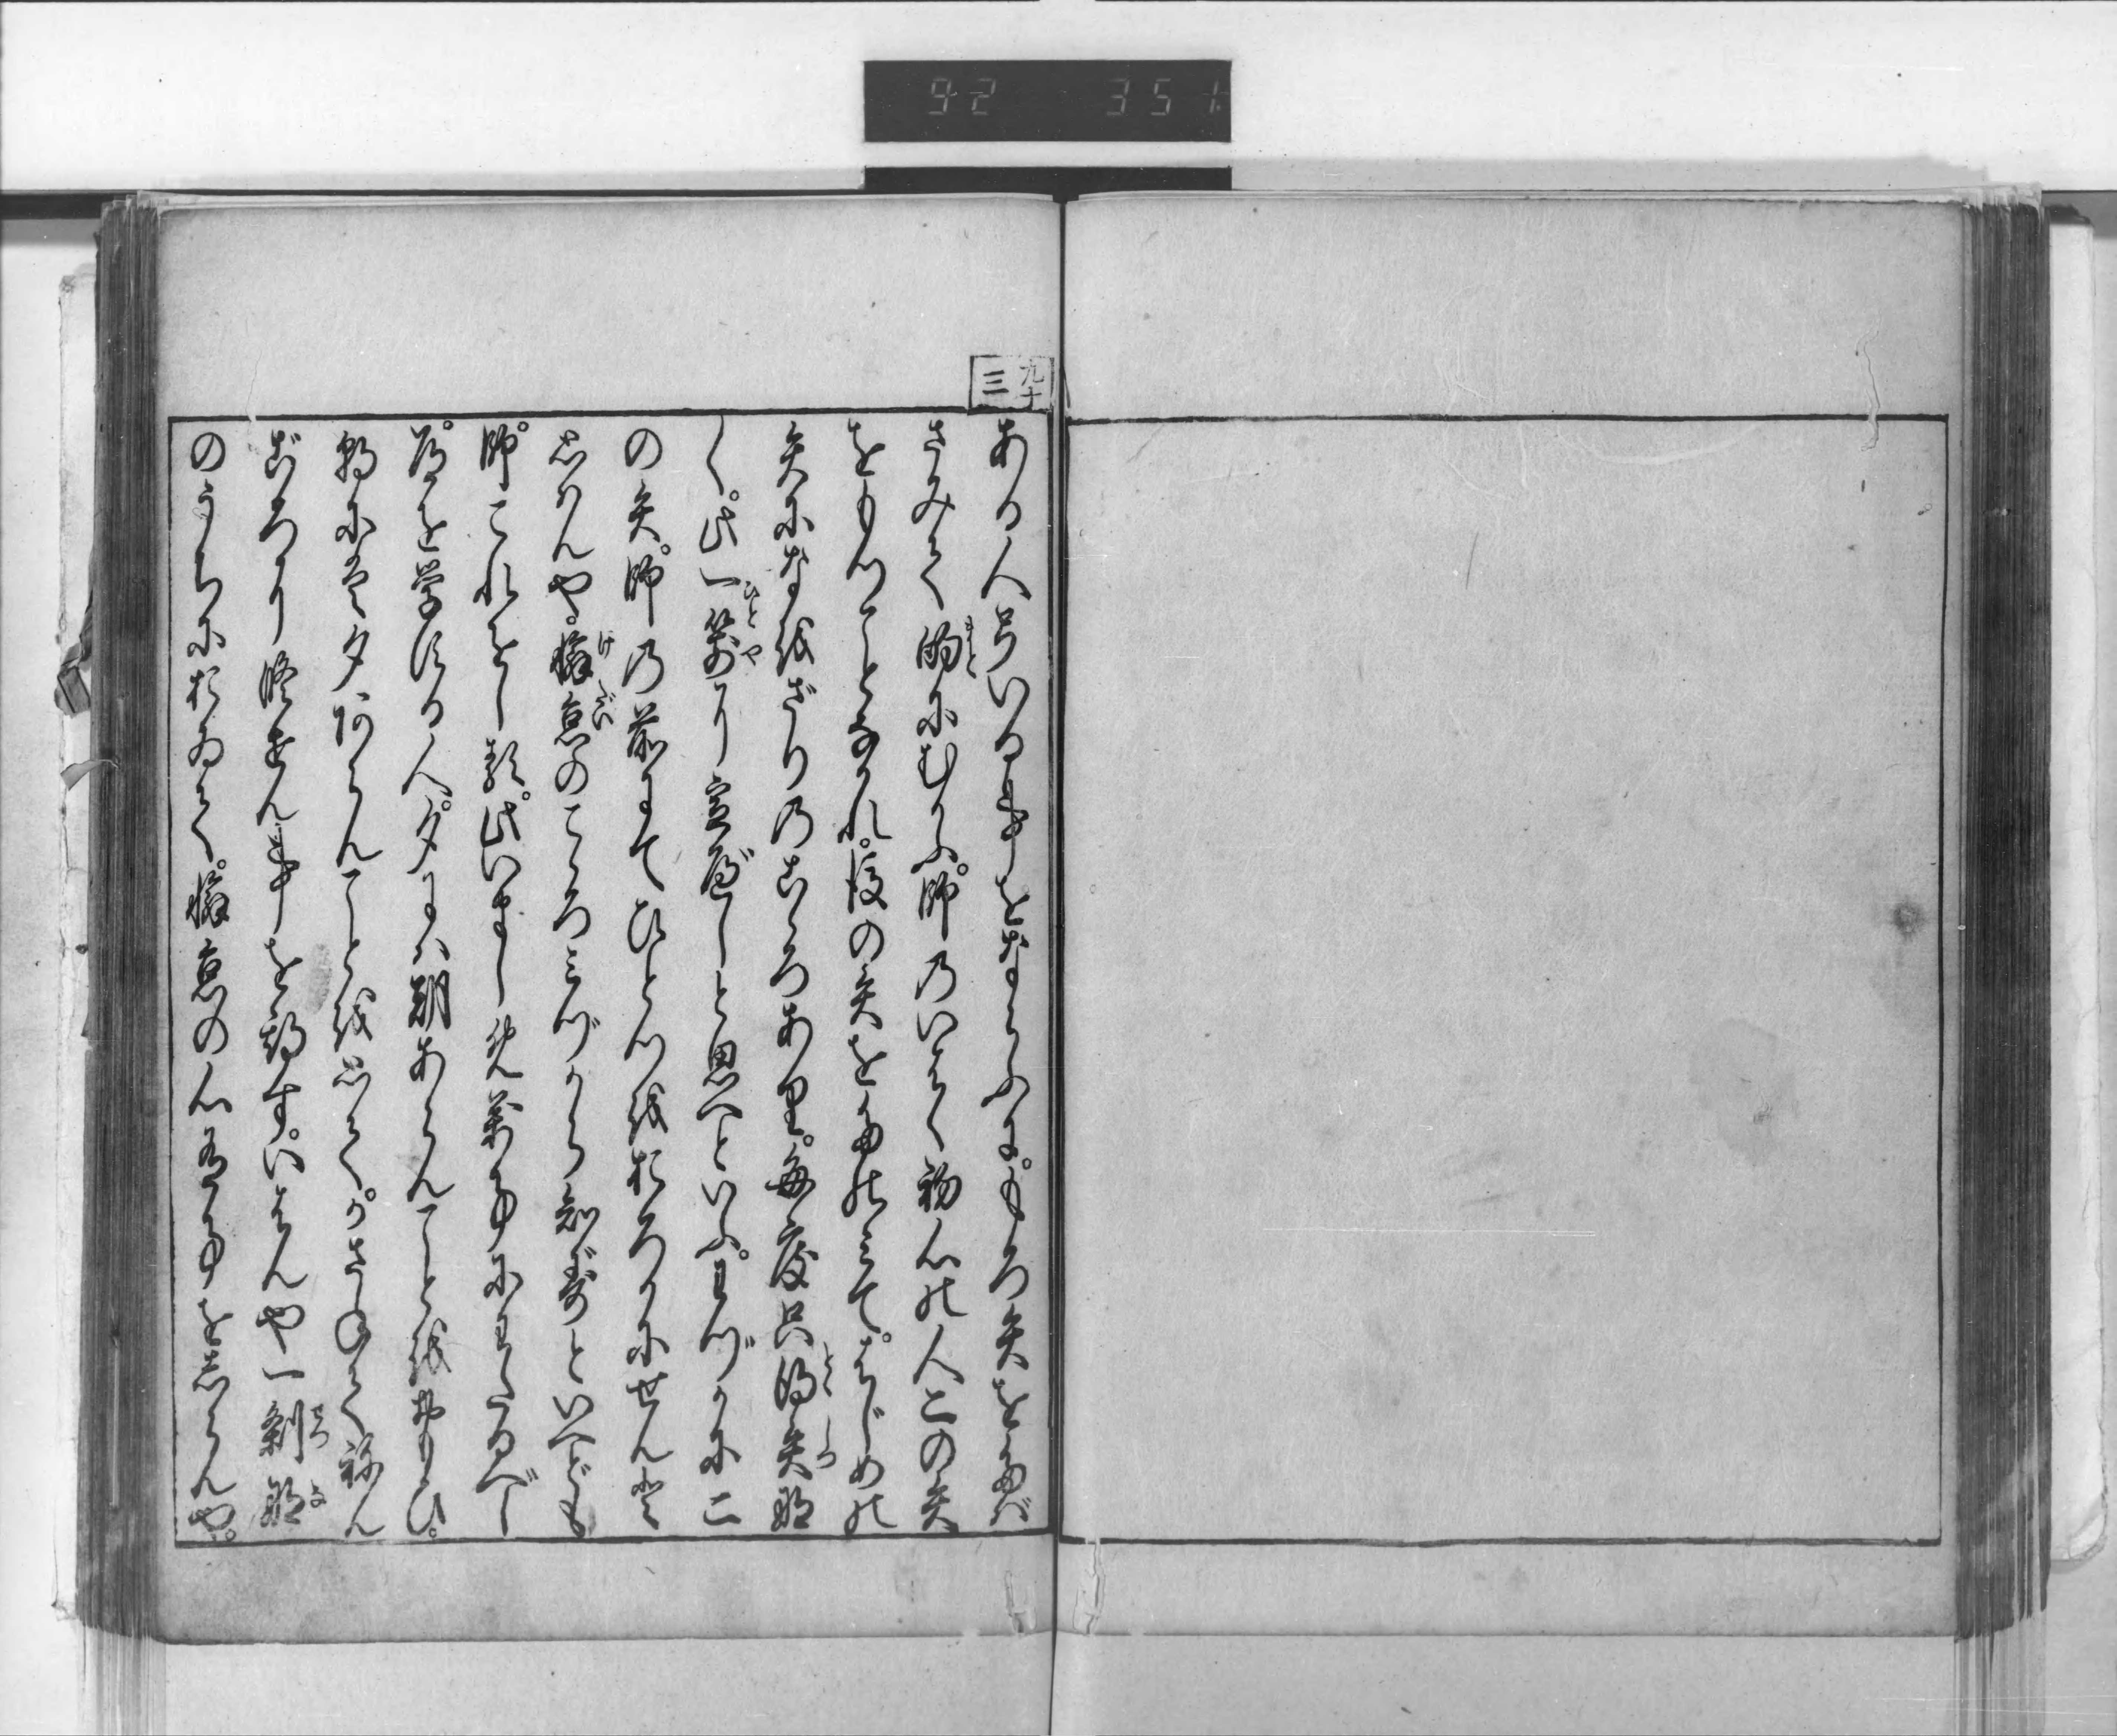 92 351
九十三
ある人弓いる事をならふに。もろ矢をたば
さみて的にむかふ。師のいはく初心の人二の矢
をもつことなかれ。後の矢をたのみて。はじめの
矢になをざりのこゝろあり。毎度只得失な
く。此一箭に定べしと思へといふ。わづかに二
の矢。師の前にてひとつをおろかにせんと
思はんや。懈怠のこゝろみづから知ずといへども
師これをしる。此いましめ万事にわたるべし
道を学する人。夕には朝あらんことをおもひ。
朝には夕あらんことを思て。かさねてねん
ごろに修せん事を期す。いはんや一刹那
のうちにおゐて。懈怠の心有事をしらんや。
まと
ひとや
けだい
とく しつ
せつ な